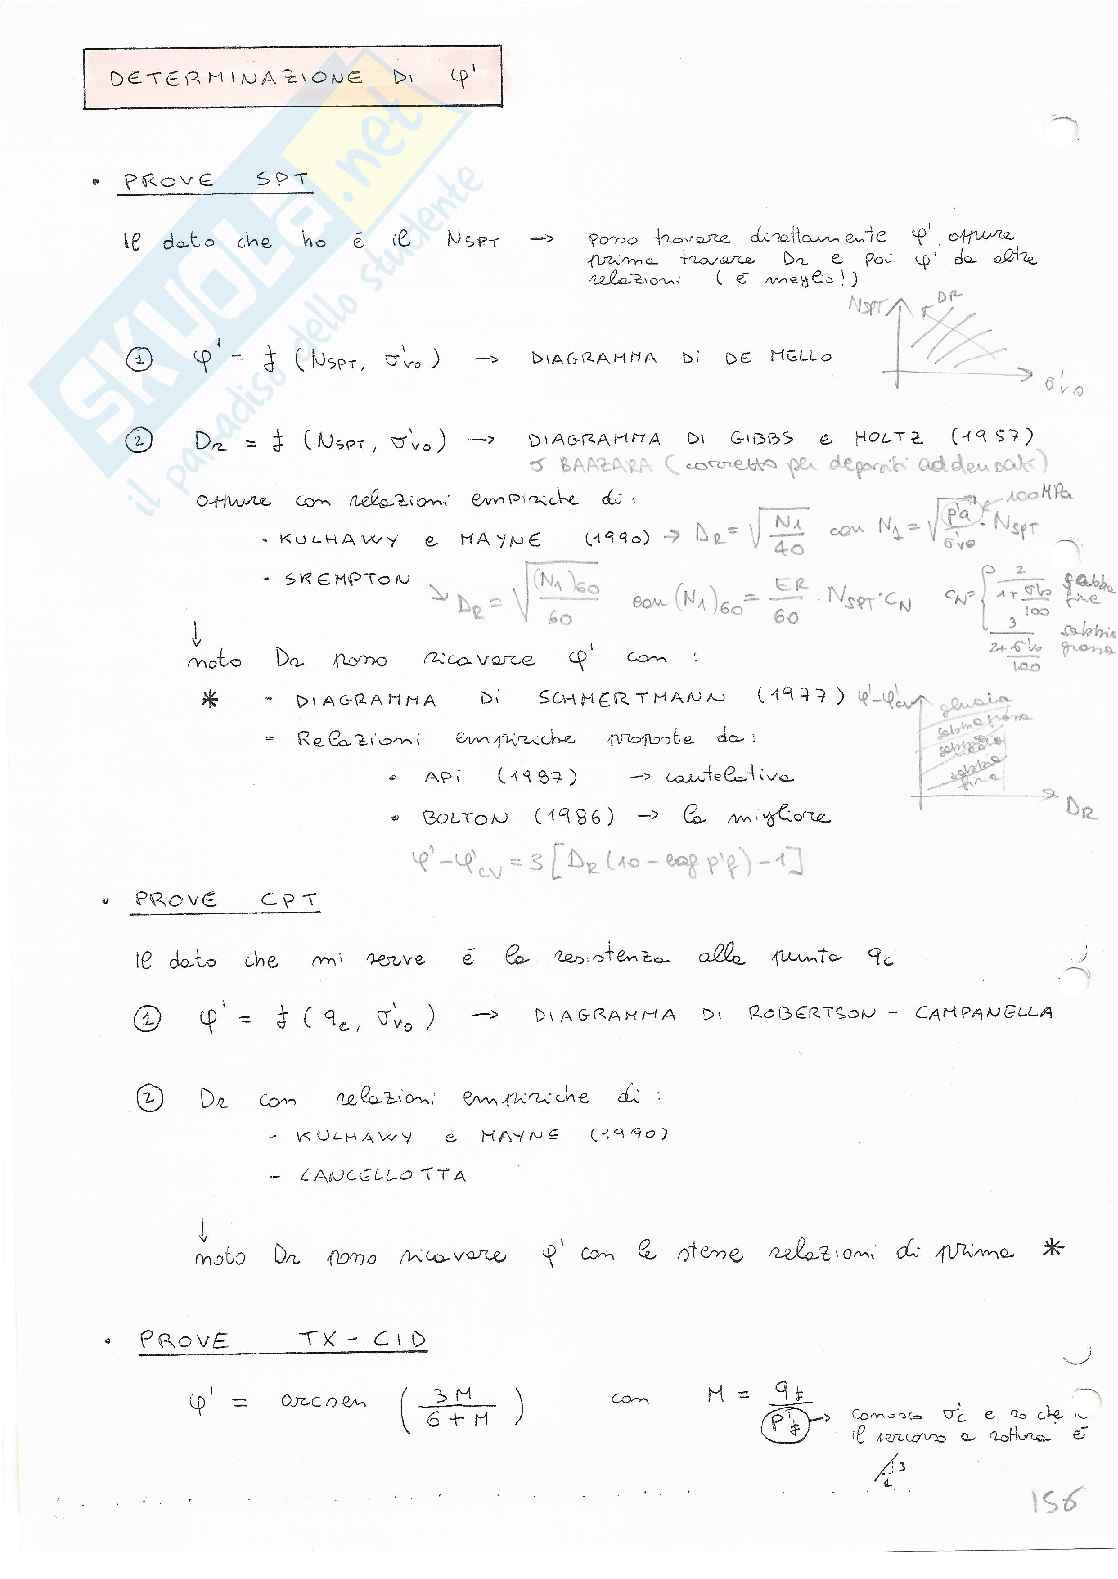 DETERMINAZIONE DI φ'
• PROVE SPT
Il dato che ho è il NSPT → posso trovare direttamente φ' oppure
prima trovare DR e poi φ' da altre
relazioni (è meglio!)
NSPT DR
σ'vo
① φ' = f (NSPT, σ'vo) → DIAGRAMMA DI DE MELLO
② DR = f (NSPT, σ'vo) → DIAGRAMMA DI GIBBS e HOLTZ (1957)
o BAAZARA (corretto per depositi addensati)
oppure con relazioni empiriche di:
- KULHAWY e MAYNE (1990) → DR = √(N1/40) con N1 = √(p'a/σ'vo) · NSPT ← 100 MPa
- SKEMPTON → DR = √((N1)60/60) con (N1)60 = ER/60 · NSPT · CN CN = { 2/(1+σ'vo/100) sabbia fine
3/(2+σ'vo/100) sabbia grossa
↓
noto DR posso ricavare φ' con:
* - DIAGRAMMA DI SCHMERTMANN (1977) φ'-φ'cv ghiaia
DR
- Relazioni empiriche proposte da:
• API (1987) → cautelativa
• BOLTON (1986) → la migliore
φ'-φ'cv = 3 [DR (10 - log p'f) - 1]
• PROVE CPT
Il dato che mi serve è la resistenza alla punta qc
① φ' = f (qc, σ'vo) → DIAGRAMMA DI ROBERTSON - CAMPANELLA
② DR con relazioni empiriche di:
- KULHAWY e MAYNE (1990)
- LANCELLOTTA
↓
noto DR posso ricavare φ' con le stesse relazioni di prima *
• PROVE TX-CID
φ' = arcsen (3M/(6+M)) con M = qf/p'f → conosco σ'c e so che
il percorso a rottura è
3
1
156
SKUOLA.net
il paradiso dello studente